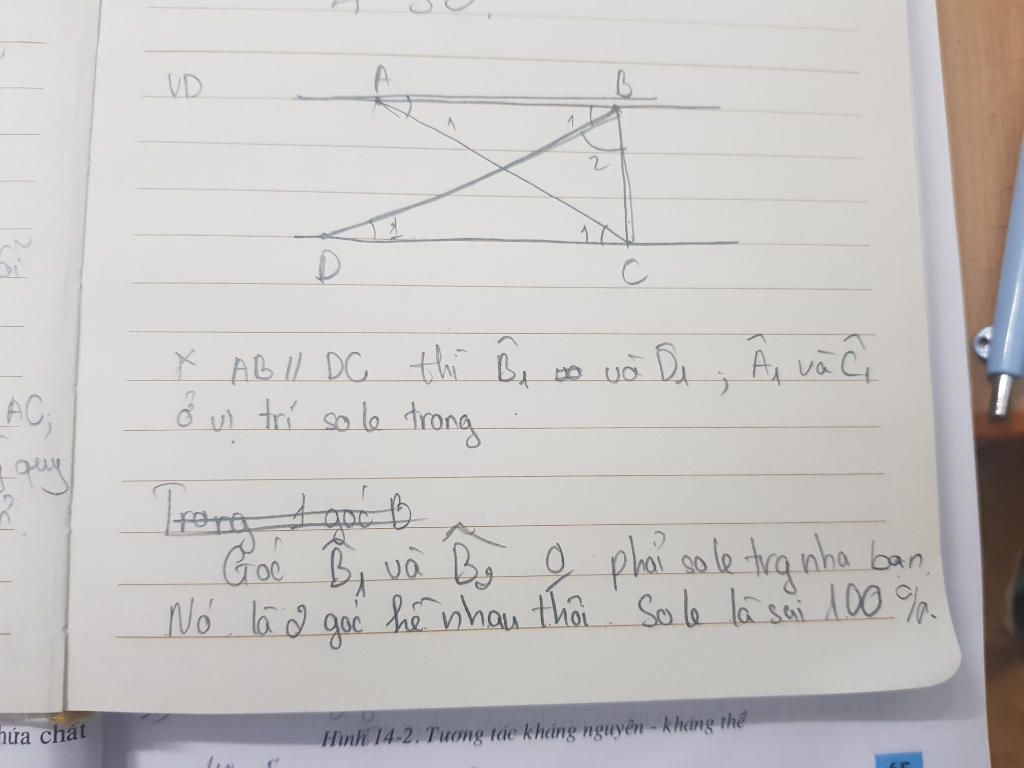 VD
A
B
1
1
2
1
1
D
C
AC,
quy
* AB // DC thì B̂₁ và D̂₁ ; Â₁ và Ĉ₁
ở vị trí so le trong
Trong 1 góc B
Góc B̂₁ và B̂₂ 0 phải so le trg nha bạn.
Nó là 2 góc kề nhau thôi. So le là sai 100%.
hứa chất
Hình 14-2. Tương tác kháng nguyên - kháng thể